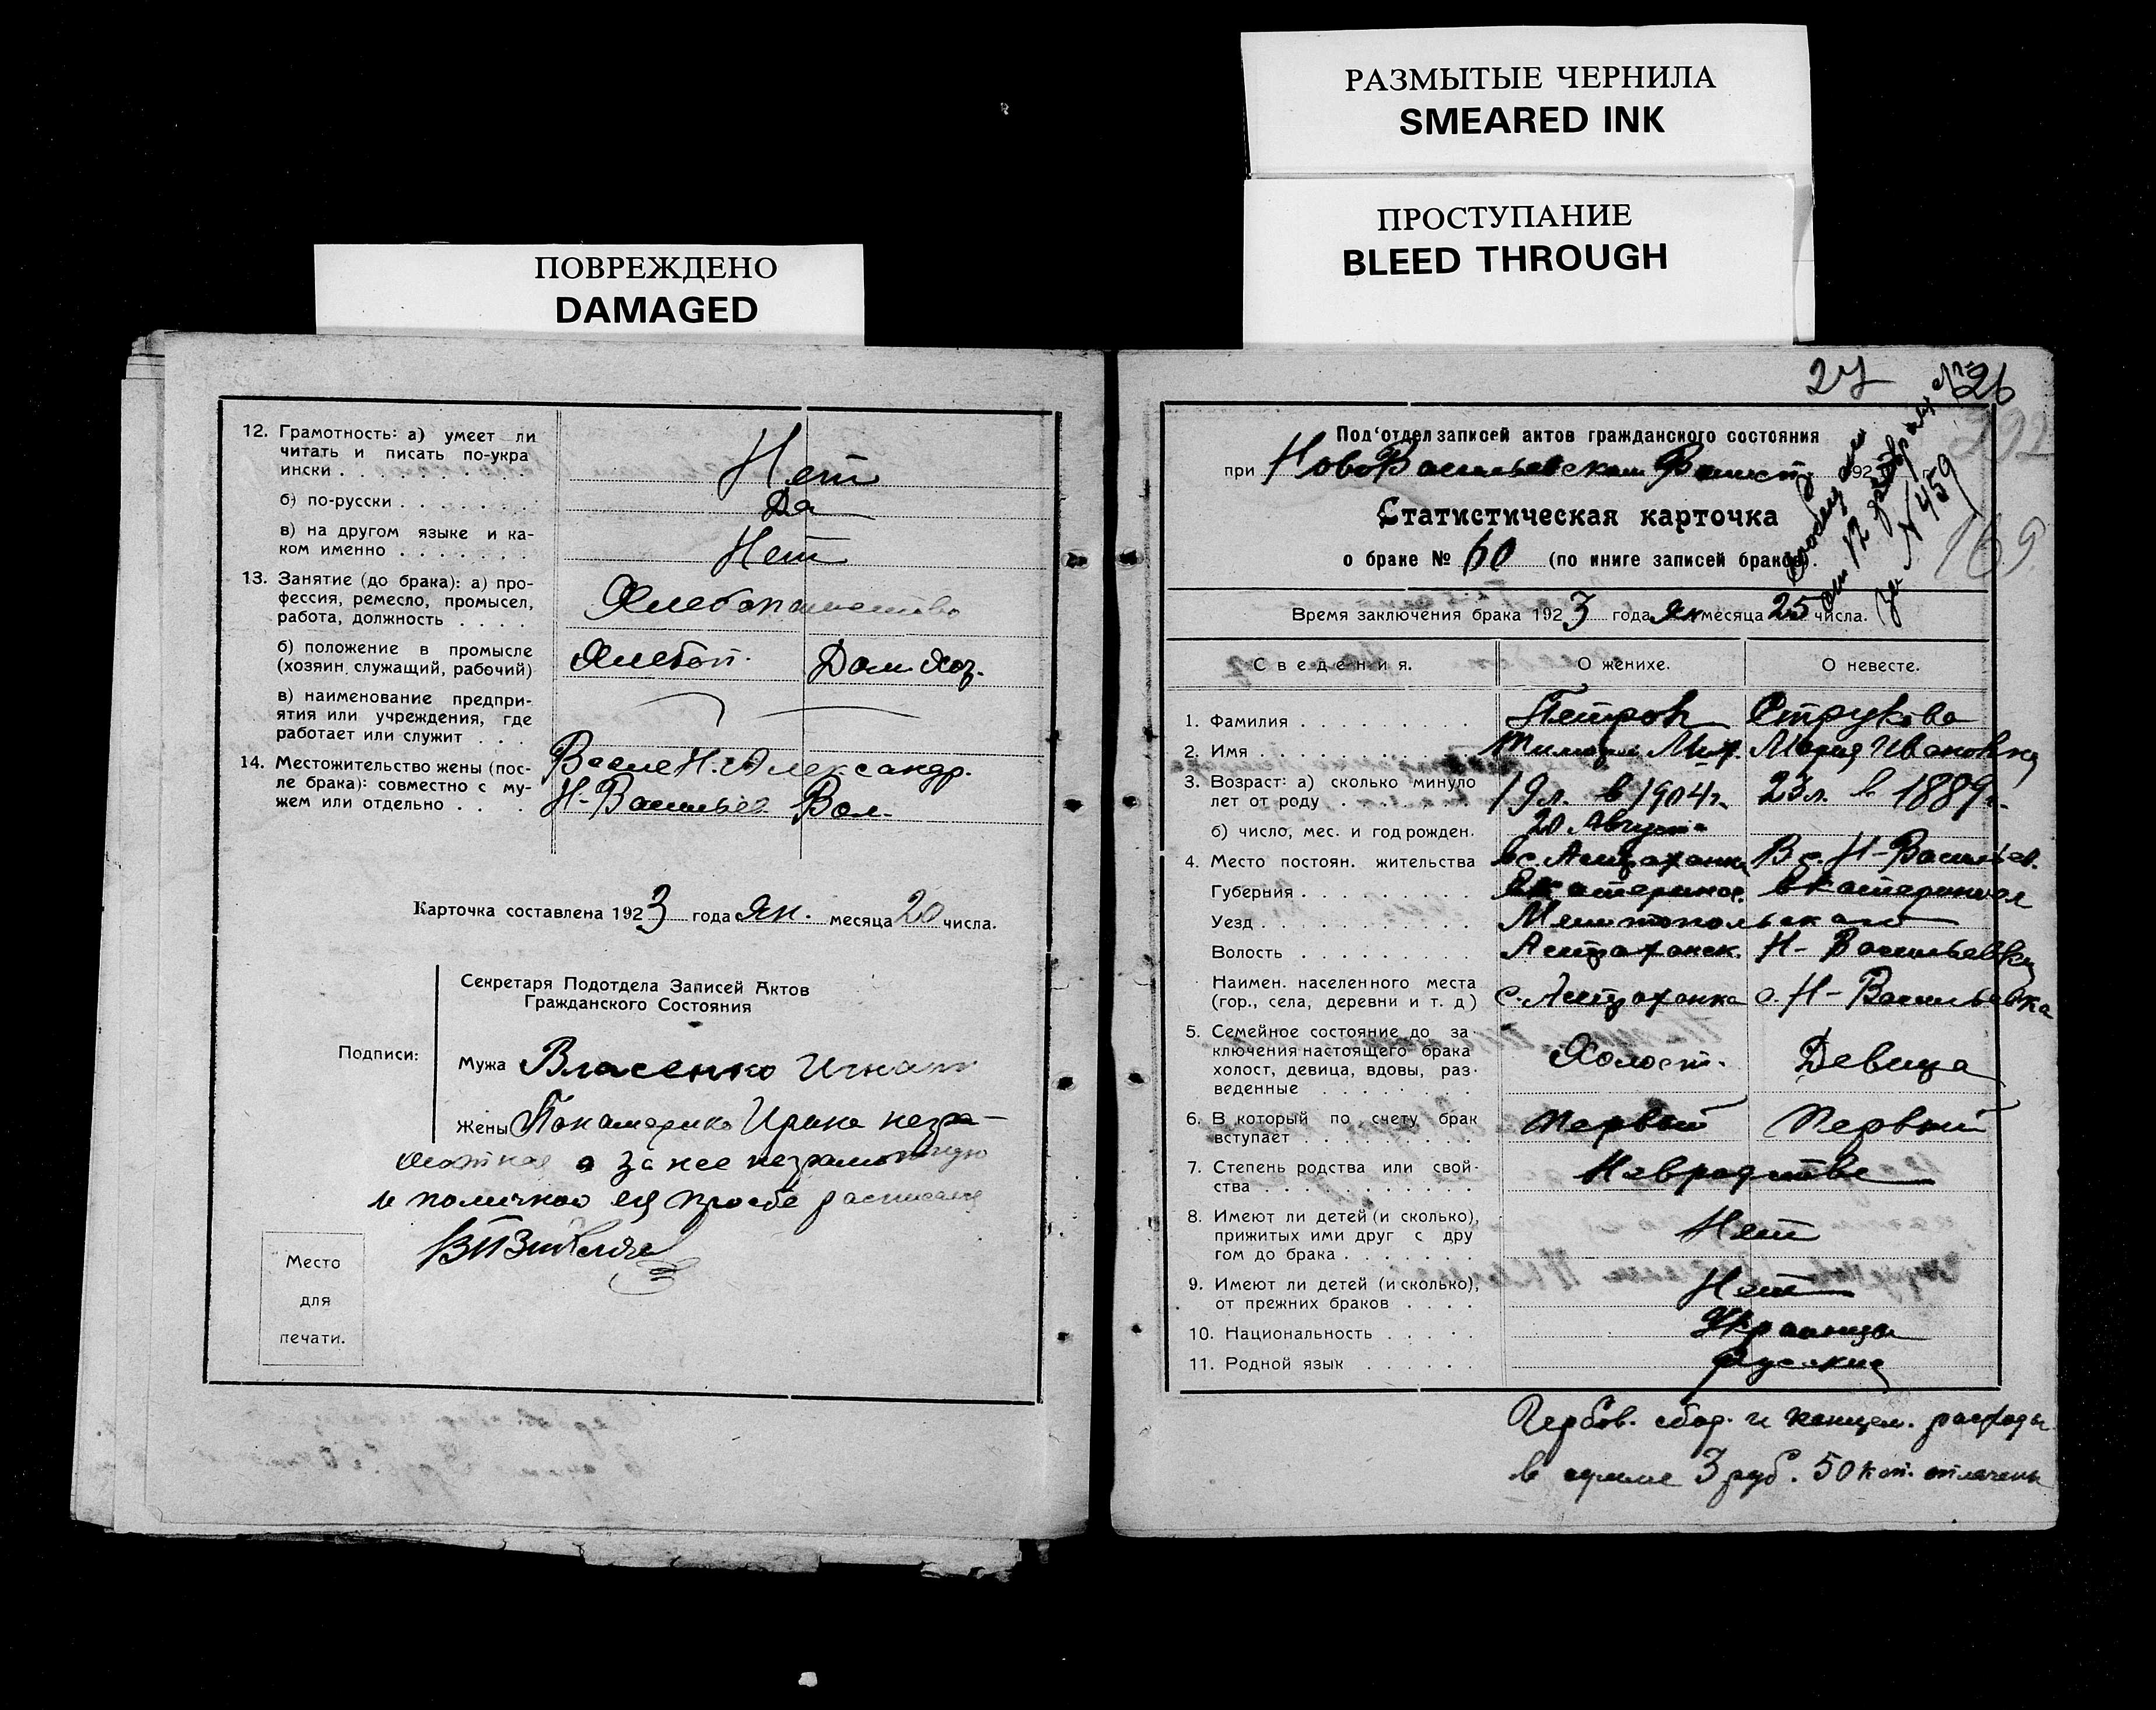 РАЗМЫТЫЕ ЧЕРНИЛА
SMEARED INK
ПРОСТУПАНИЕ
BLEED THROUGH
ПОВРЕЖДЕНО
DAMAGED
12. Грамотность: а) умеет ли
читать и писать по-укра
ински . . . Нет
б) по-русски . . . Да
в) на другом языке и ка-
ком именно . . . Нет
13. Занятие (до брака): а) про-
фессия, ремесло, промысел,
работа, должность . . . . Хлебопашество
б) положение в промысле
(хозяин, служащий, рабочий) Хлебоп. Дом. Хоз.
в) наименование предпри-
ятия или учреждения, где
работает или служит . . .
14. Местожительство жены (пос-
ле брака): совместно с му-
жем или отдельно . . . В селе Н. Александр.
Н-Васильев. Вол.
Карточка составлена 1923 года Ян. месяца 20 числа.
Секретаря Подотдела Записей Актов
Гражданского Состояния
Подписи:
Мужа Власенко Игнат
Жены Ирина негра-
мотная а за нее неграмотную
и по личной ея просьбе расписался
Место
для
печати.
27
26
392
169
№ 459
Под'отдел записей актов гражданского состояния
при Ново Васильевском 192
Статистическая карточка
о браке № 60 (по книге записей браков).
Время заключения брака 1923 года Ян месяца 25 числа.
Сведения. О женихе. О невесте.
1. Фамилия . . . Петров Струкова
2. Имя . . . Тимофей Мих. Мария Ивановна
3. Возраст: а) сколько минуло
лет от роду . . . 19 л. в 1904 г. 23 л. в 1889 г.
б) число, мес. и год рожден. 20 Августа
4. Место постоян. жительства в с. Астраханка В с. Н-Васильев.
Губерния . . . Екатеринос. Екатериносл
Уезд . . . Мелитопольского
Волость . . . Астраханск. Н-Васильевка
Наимен. населенного места
(гор., села, деревни и т. д) с. Астраханка с. Н-Васильевка
5. Семейное состояние до за-
ключения настоящего брака
холост, девица, вдовы, раз-
веденные . . . Холост. Девица
6. В который по счету брак
вступает . . . Первый Первый
7. Степень родства или свой-
ства . . . Невродстве
8. Имеют ли детей (и сколько),
прижитых ими друг с дру
гом до брака . . . Нет
9. Имеют ли детей (и сколько),
от прежних браков . . . . Нет
10. Национальность . . . Украинцы
11. Родной язык . . . Русский
Гербов. сбор. и канцел. расходы
в сумме 3 руб. 50 коп. оплачены